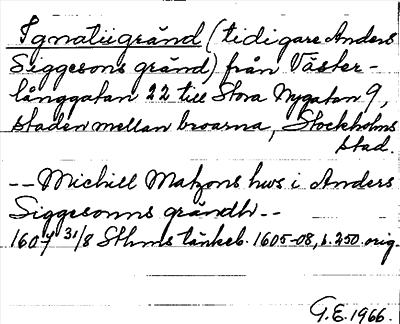 Ignatiigränd (tidigare Anders
Siggesons gränd) från Väster-
långgatan 22 till Stora Nygatan 9,
staden mellan broarna, Stockholms
stad.
-- Michill Matzons hws i Anders
Siggesonns grändh --
1607 31/8 Sthms tänkeb. 1605-08, s. 250. orig.
G.E. 1966.